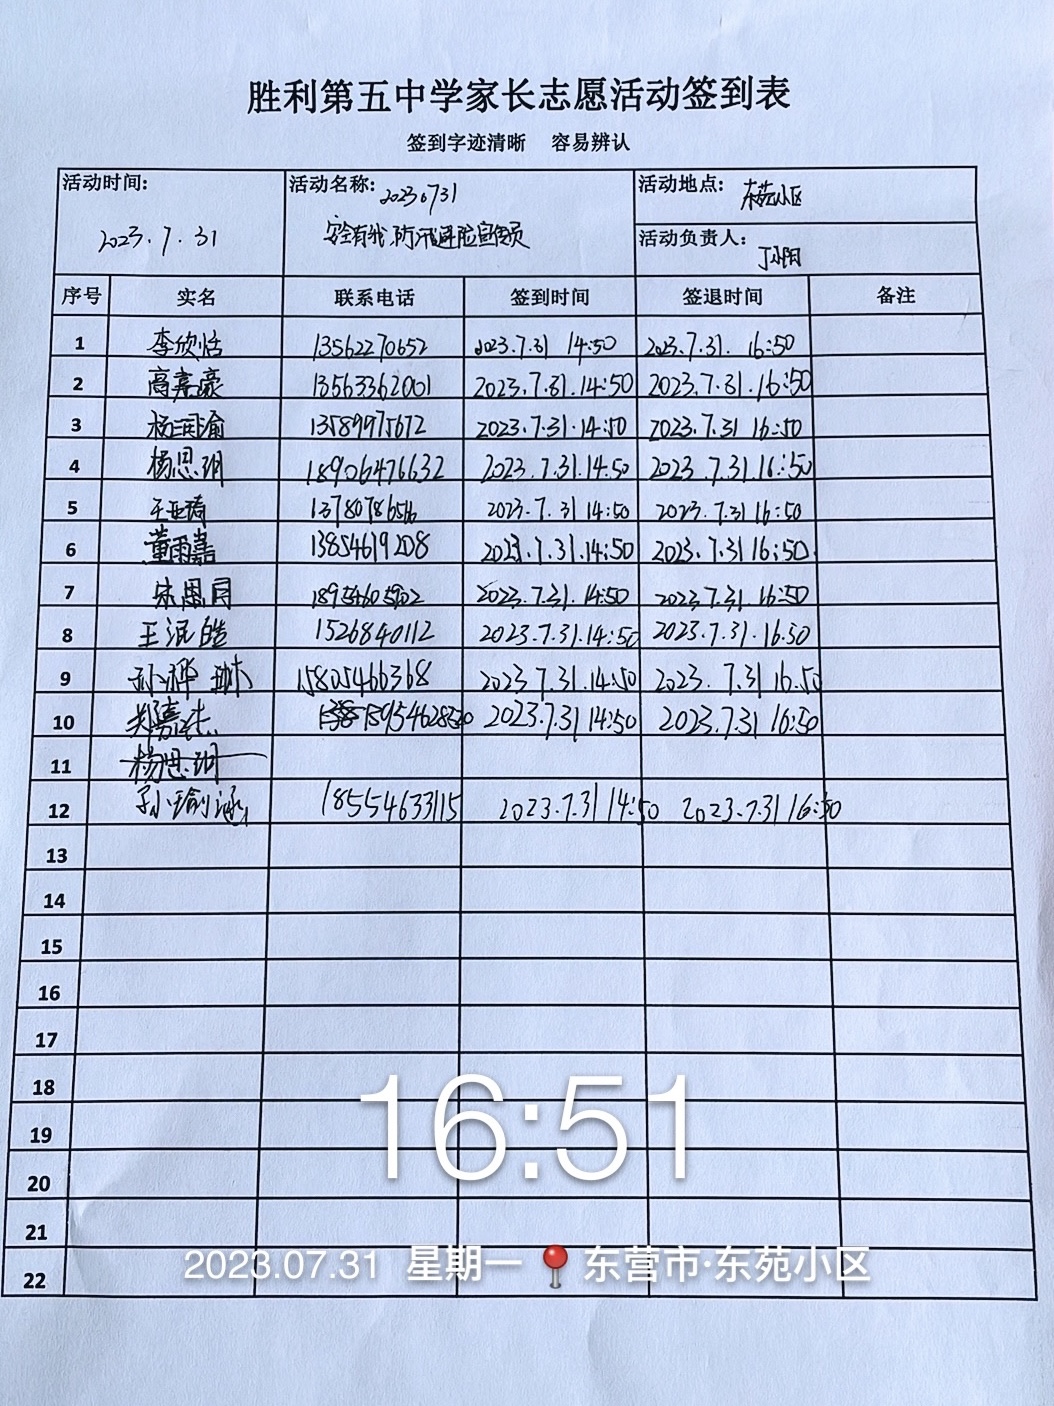 胜利第五中学家长志愿活动签到表
签到字迹清晰 容易辨认
活动时间: 2023.7.31
活动名称: 20230731
安全有我,防汛避险宣传员
活动地点: 东苑小区
活动负责人: 丁小阳
序号 实名 联系电话 签到时间 签退时间 备注
1 李欣恬 13562270652 2023.7.31 14:50 2023.7.31. 16:50
2 高嘉豪 13563362001 2023.7.31.14:50 2023.7.31.16:50
3 杨润渝 13589975672 2023.7.31.14:50 2023.7.31 16:50
4 杨思玥 18906476632 2023.7.31.14:50 2023.7.31.16:50
5 王亚琦 2023.7.31 14:50 2023.7.31 16:50
6 董雨嘉 13854619208 2023.7.31.14:50 2023.7.31 16:50.
7 宋思同 18954605902 2023.7.31. 14:50 2023.7.31. 16:50
8 王泥皓 1526840112 2023.7.31.14:50 2023.7.31.16.50
9 孙骅琳 15805466368 2023.7.31.14:50 2023.7.31 16.50
10 2023.7.31 14:50 2023.7.31 16:50
11 杨思玥
12 孙瑜涵 18554633115 2023.7.31 14:50 2023.7.31 16:50
13
14
15
16
17
18
19
20
21
22
16:51
2023.07.31 星期一 📍 东营市·东苑小区